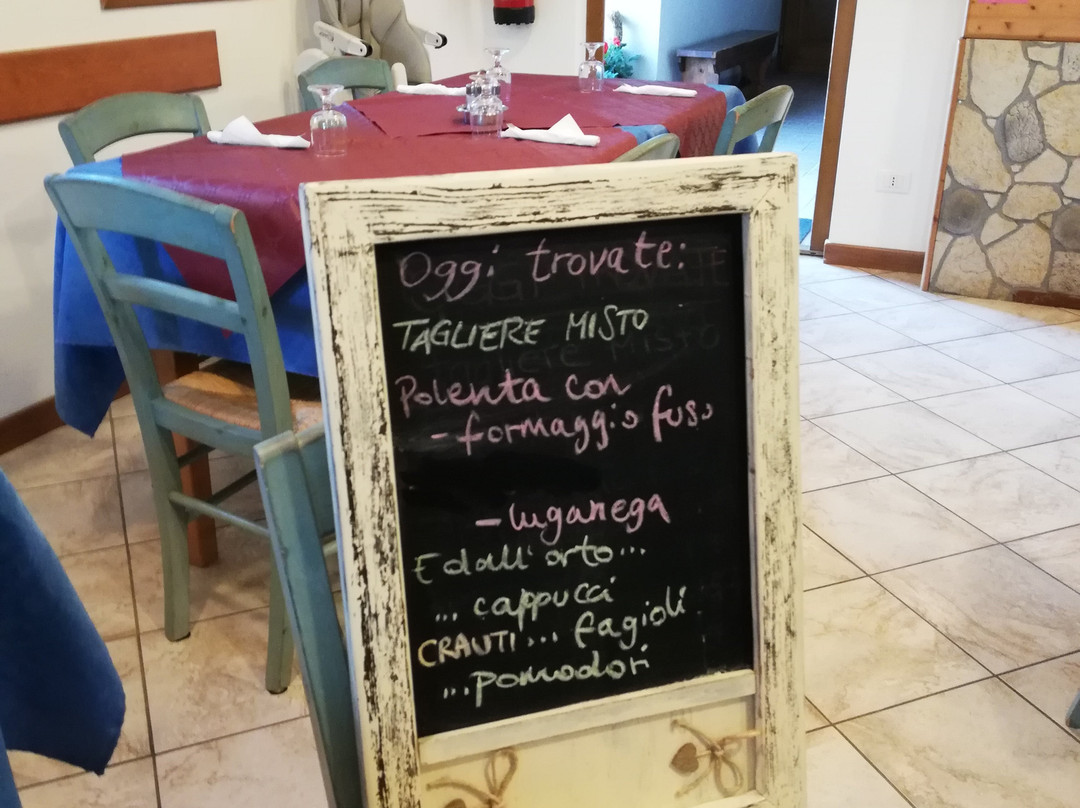 Oggi trovate:
TAGLIERE MISTO
Polenta con
- formaggio fuso
- luganega
E dall'orto...
... cappucci
CRAUTI... fagioli
... pomodori